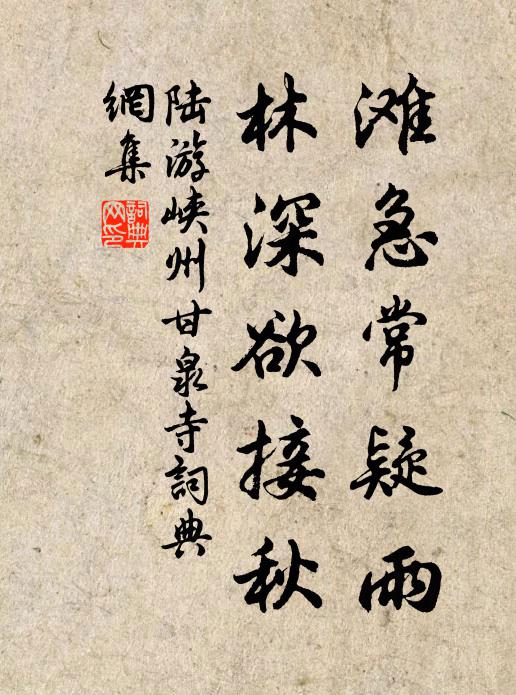 滩急常疑雨
林深欲接秋
陆游峡州甘泉寺詞典
網集
詞典
网印